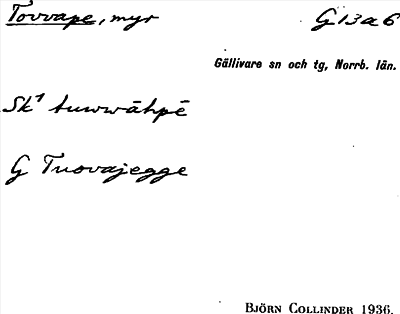 Tovvape, myr G 13 a 6
Gällivare sn och tg, Norrb. län.
Sk¹ tuwwāhpē
G Tuovajegge
BJÖRN COLLINDER 1936.